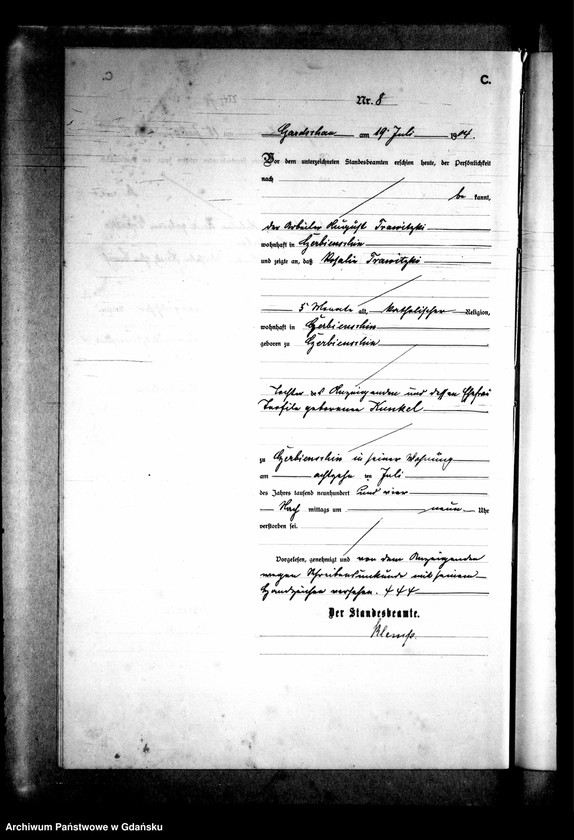 C.
Nr. 8
Gardschau am 19. Juli 1904.
Vor dem unterzeichneten Standesbeamten erschien heute, der Persönlichkeit
nach
be kannt,
der Arbeiter August Trawitzki
wohnhaft in Czerbienschin
und zeigte an, daß Rosalie Trawitzki
5 Monate alt, katholischer Religion,
wohnhaft in Czerbienschin
geboren zu Czerbienschin
Tochter des Anzeigenden und dessen Ehefrau
Teofile geborenen Kunkel
zu Czerbienschin in seiner Wohnung
am achtzehn ten Juli
des Jahres tausend neunhundert und vier
Nach mittags um neun Uhr
verstorben sei.
Vorgelesen, genehmigt und von dem Anzeigenden
wegen Schreibensunkunde mit seinem
Handzeichen versehen. +++
Der Standesbeamte.
Archiwum Państwowe w Gdańsku